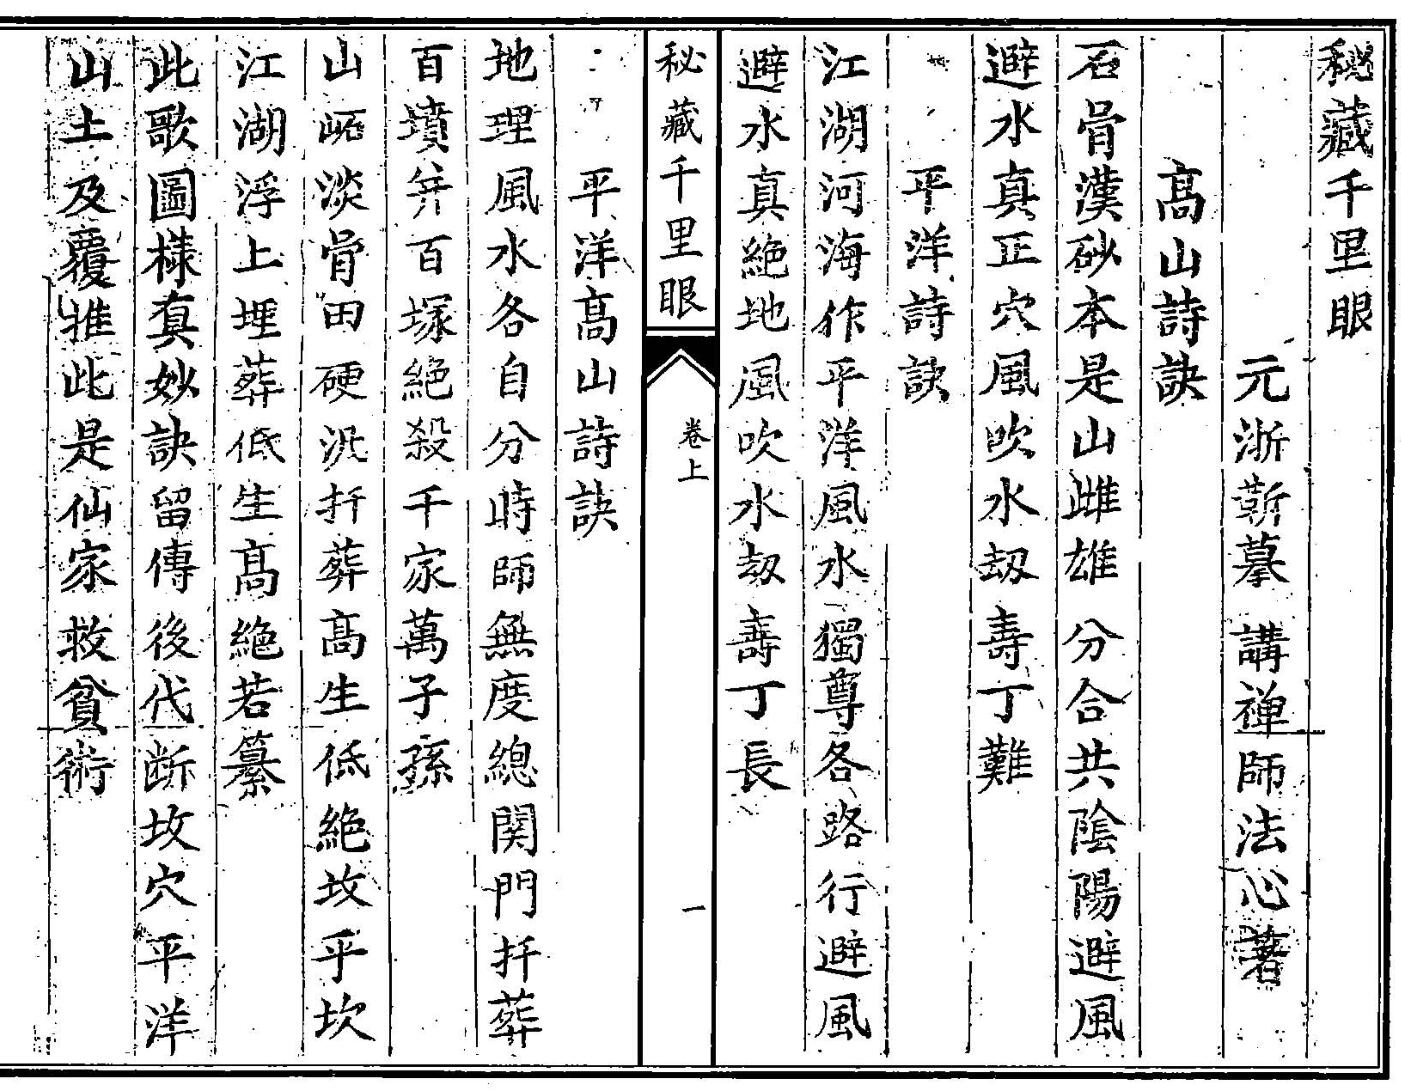 秘藏千里眼
元浙蘄摹講禅師法心著
髙山詩訣
石骨漢砂本是山雌雄分合共陰陽避風
避水真正穴風吹水刼壽丁難
平洋詩訣
江湖河海作平洋風水獨尊各路行避風
避水真絶地風吹水刼壽丁長
秘藏千里眼
卷上
一
平洋髙山詩訣
地理風水各自分時師無度總関門扦葬
百墳弃百塚絶殺千家萬子孫
山崅淡骨田硬汎扦葬髙生低絶坟乎坎
江湖浮上埋葬低生髙絶若纂
此歌圖樣真妙訣留傳後代断坟穴平洋
山土及覆推此是仙家救貧術